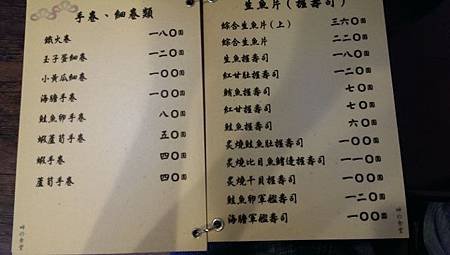 手卷、細卷類
鐵火卷 一八〇圓
玉子蛋細卷 一二〇圓
小黃瓜細卷 一〇〇圓
海膽手卷 一〇〇圓
鮭魚卵手卷 八〇圓
蝦蘆筍手卷 五〇圓
蝦手卷 四〇圓
蘆筍手卷 四〇圓
生魚片(握壽司)
綜合生魚片(上) 三六〇圓
綜合生魚片 二二〇圓
生魚握壽司 一八〇圓
紅甘肚握壽司 一〇〇圓
鮪魚握壽司 七〇圓
紅甘握壽司 七〇圓
鮭魚握壽司 六〇圓
炙燒鮭魚肚握壽司 一〇〇圓
炙燒比目魚鰭邊握壽司 一一〇圓
炙燒干貝握壽司 一〇〇圓
鮭魚卵軍艦壽司 一二〇圓
海膽軍艦壽司 一〇〇圓